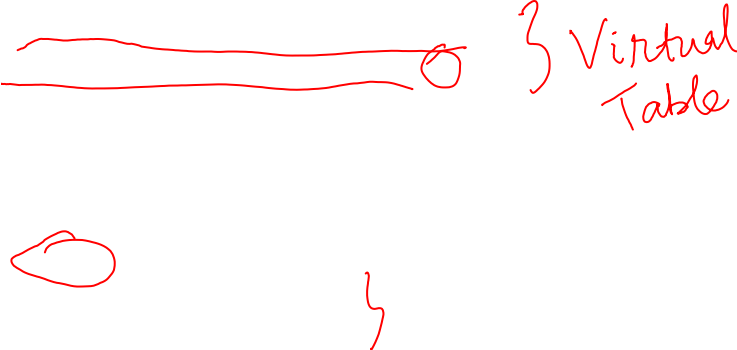 } Virtual
Table
}